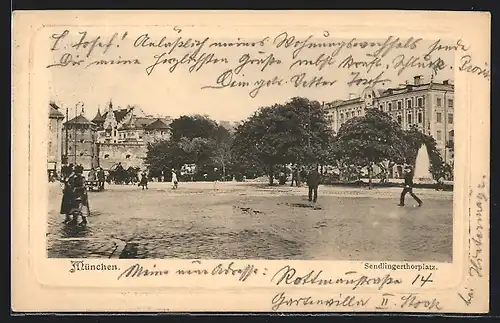 L. Josef! Anläßlich meines Wohnungswechsels sende
Dir meine herzlichsten Grüße
Dein getr. Vetter Josef
München.
Sendlingerthorplatz.
Meine neue Adresse: Rottmannstraße 14
Gartenvilla II. Stock
bei Hintermaier